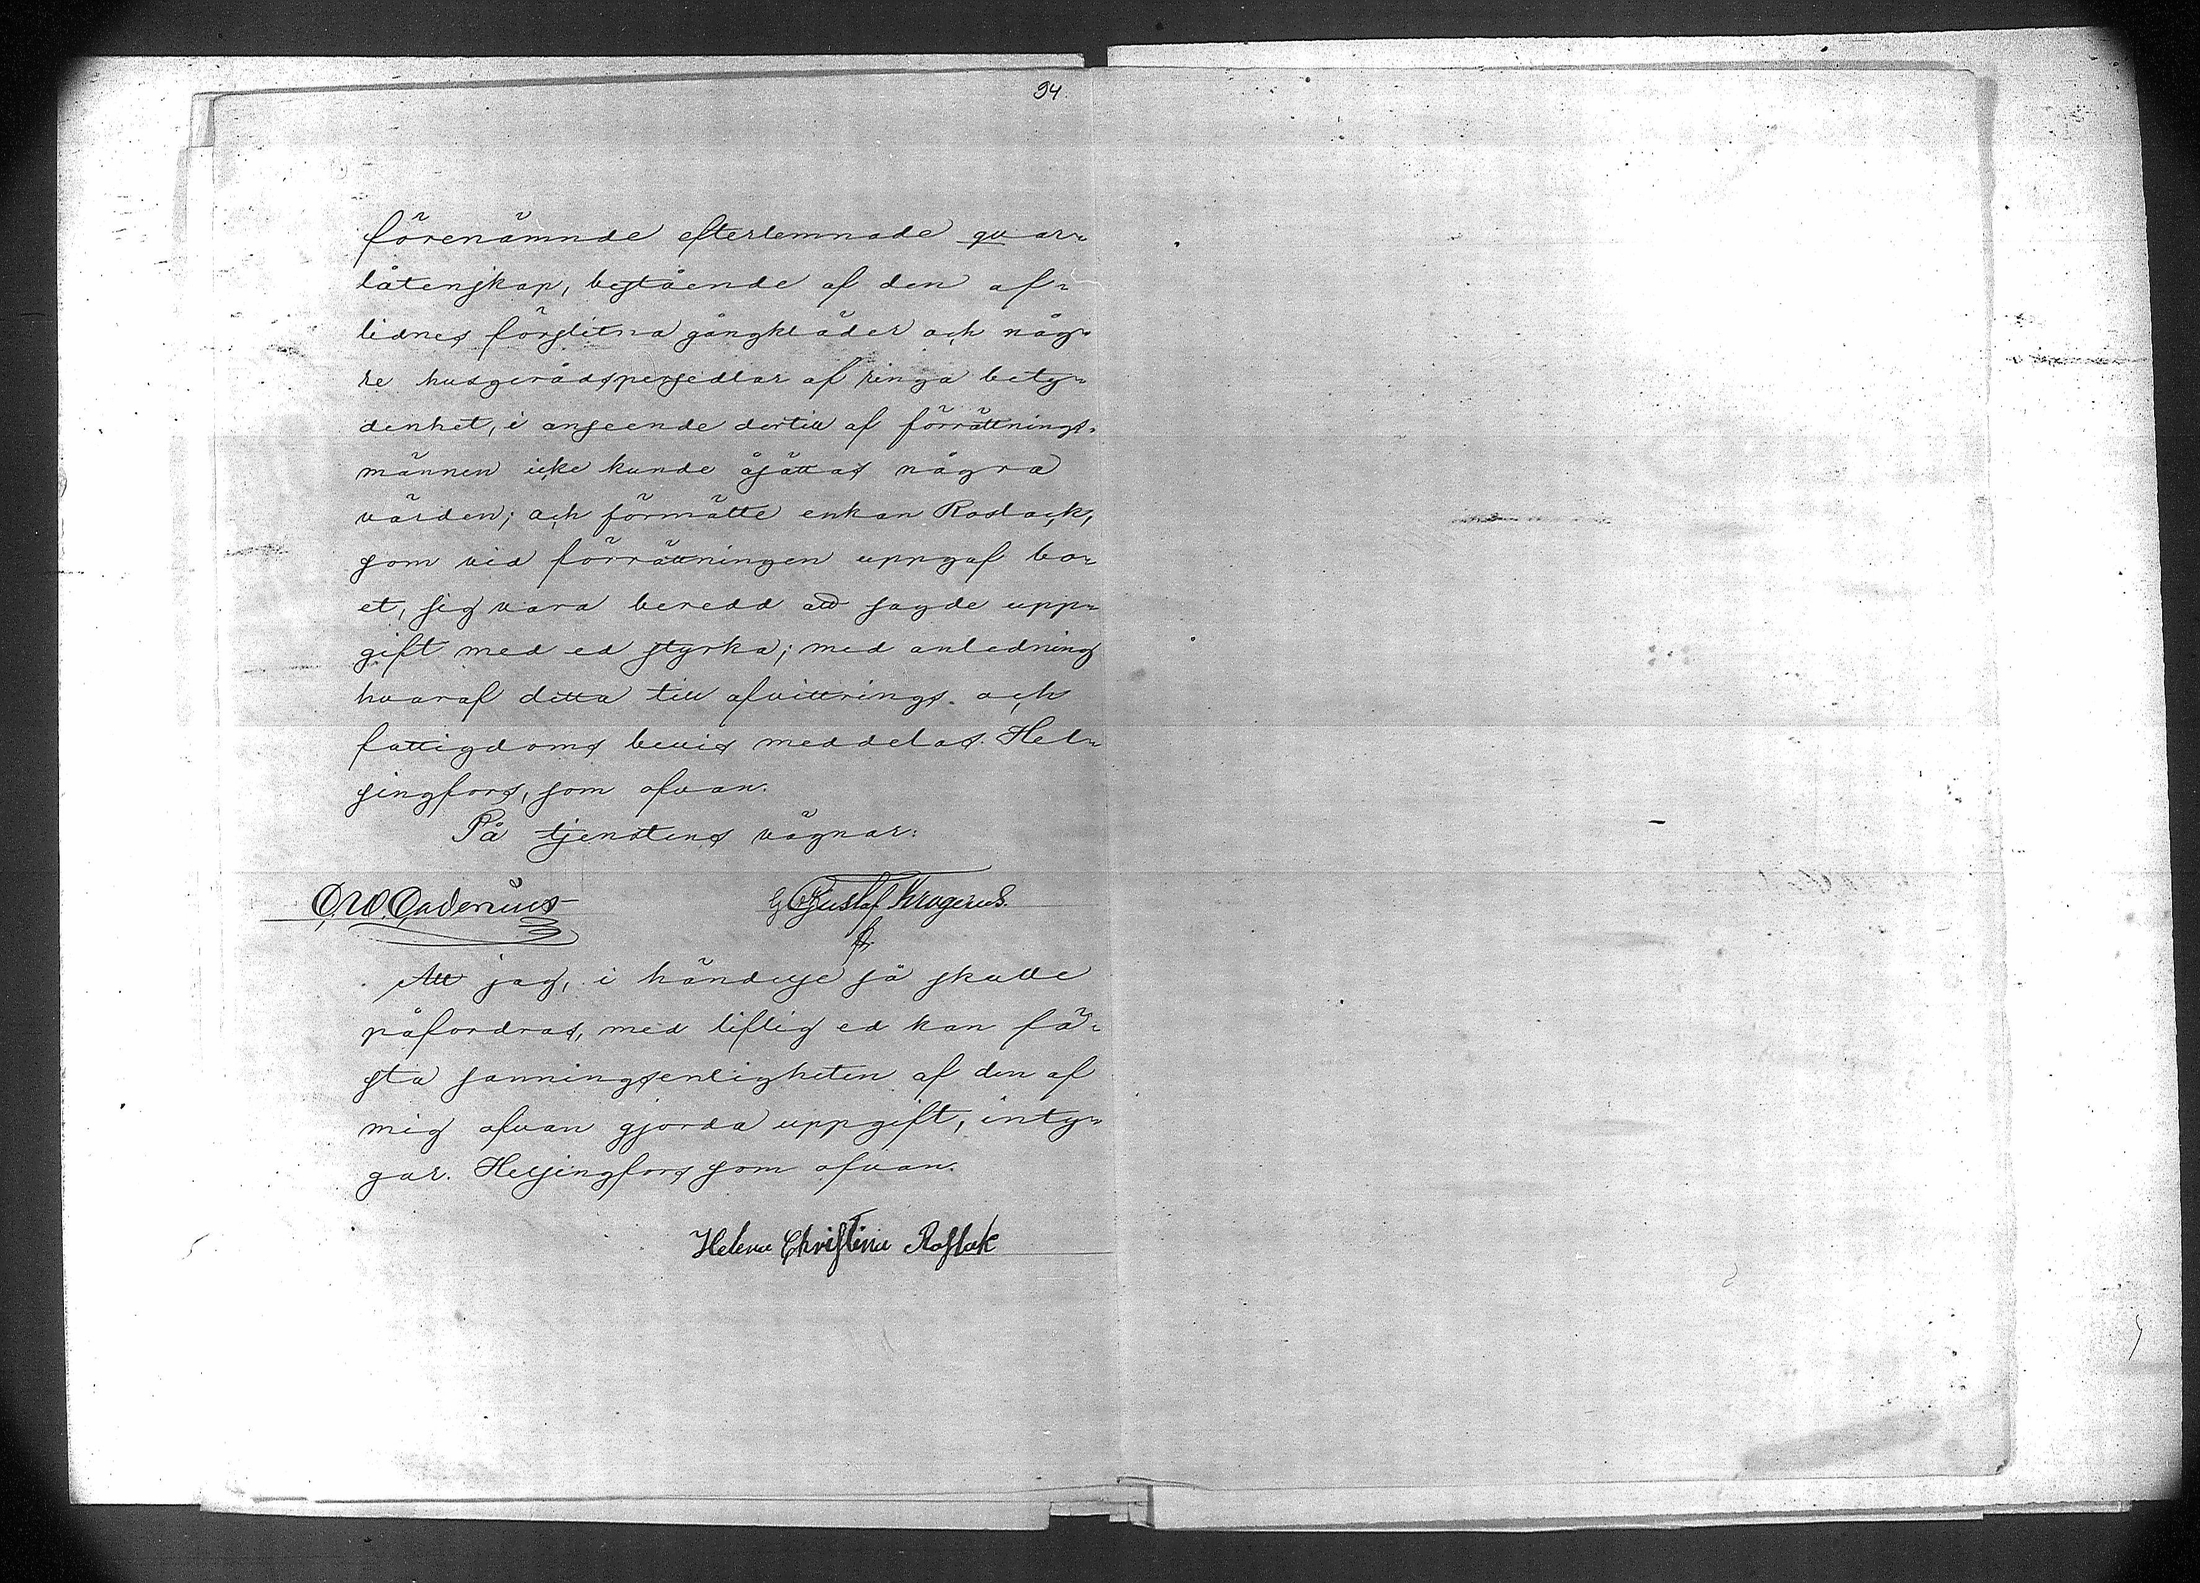 94.
förenämnde efterlemnade qvar-
låtenskap, bestående af den af-
lidnes förslitna gångkläder och någ-
re husgerådspersedlar af ringa bety-
denhet, i anseende dertill af förrättnings-
männen icke kunde åsättas några
värden; och förmätte enkan Rostack,
som vid förrättningen uppgaf bo-
et, sig vara beredd att sagde upp-
gift med ed styrka; med anledning
hvaraf detta till afvittrings- och
fattigdoms bevis meddelas. Hel-
singfors, som ofvan.
På tjenstens vägnar:
Gustaf Krogerus.
Att jag, i händelse så skulle
påfordras, med liflig ed kan fä-
sta sanningsenligheten af den af
mig ofvan gjorda uppgift, inty-
gar. Helsingfors som ofvan.
Helena Christina Rostak